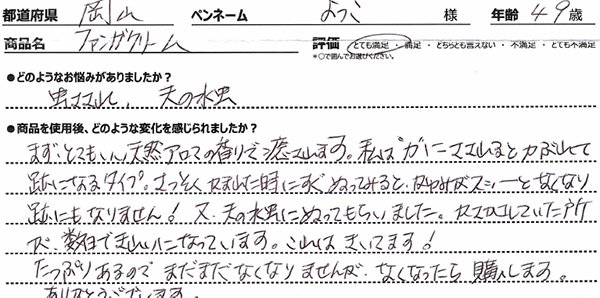 都道府県 岡山 ペンネーム よっこ 様 年齢 49歳
商品名 ファンガクリーム 評価 とても満足・満足・どちらとも言えない・不満足・とても不満足
*○で囲んでお選びください。
●どのようなお悩みがありましたか？
虫ささされ、夫の水虫
●商品を使用後、どのような変化を感じられましたか？
まず、とてもいい天然アロマの香りで癒されます。私は"カ"にさされるとかぶれて
跡になるタイプ。さっそくかまれた時にすぐぬってみると、かゆみがスゥーとなくなり
跡にもなりません！又、夫の水虫にぬってもらいました。カサカサしていた所
が、数日できれいになっています。これはきいてます！
たっぷりあるのでまだまだなくなりませんが、なくなったら購入します。
ありがとうございます。